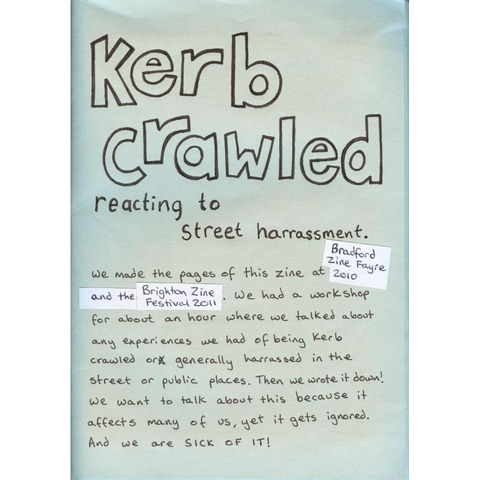 Kerb
crawled
reacting to
street harrassment.
We made the pages of this zine at Bradford Zine Fayre 2010
and the Brighton Zine Festival 2011. We had a workshop
for about an hour where we talked about
any experiences we had of being kerb
crawled or generally harrassed in the
street or public places. Then we wrote it down!
We want to talk about this because it
affects many of us, yet it gets ignored.
And we are SICK OF IT!